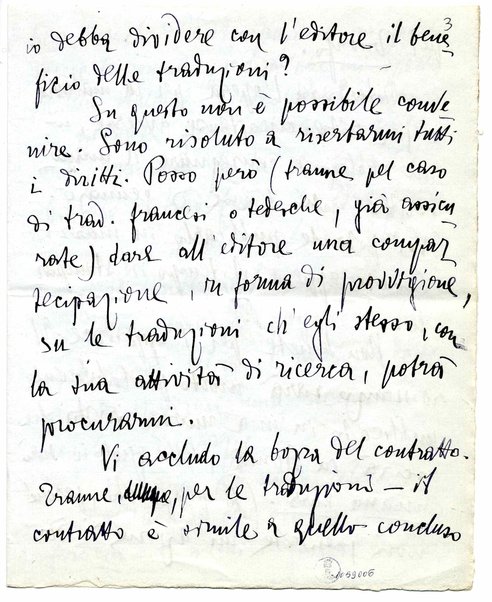 3
io debba dividere con l'editore il bene
ficio delle traduzioni?
Su questo non è possibile conve
nire. Sono risoluto a riserbarmi tutti
i diritti. Posso però (tranne pel caso
di trad. francesi o tedesche, già assicu
rate) dare all'editore una compar
tecipazione, in forma di provvigione,
su le traduzioni ch'egli stesso, con
la sua attività di ricerca, potrà
procurarmi.
Vi accludo la bozza del contratto.
Tranne, per le traduzioni – il
contratto è simile a quello concluso